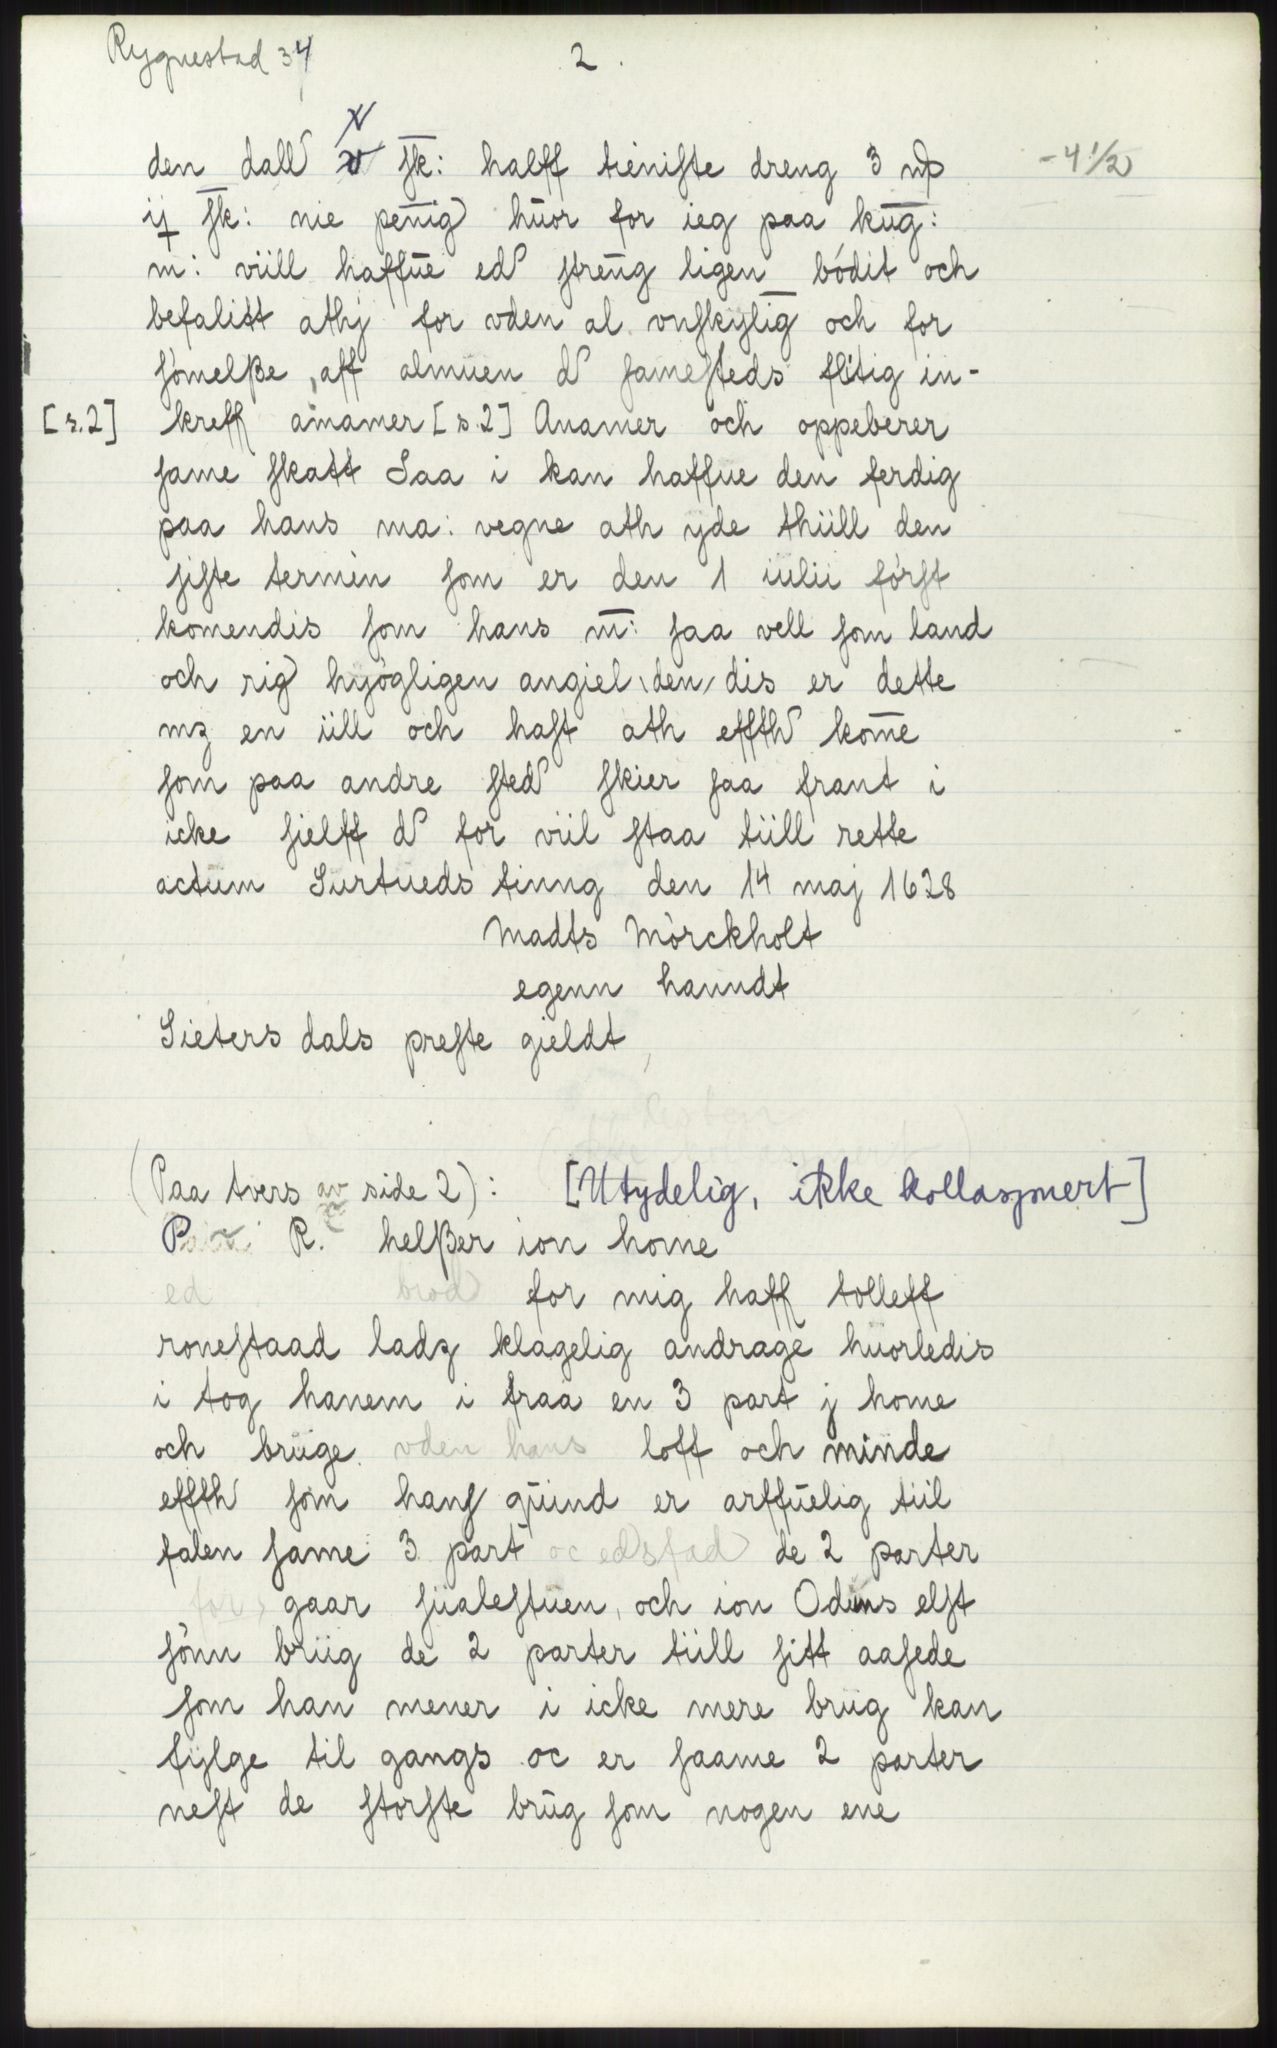 Rygnestad 34
2.
den dall v sk: halff tieniste dreng 3 mp - 4 1/2
ij sk: nie penig huor for ieg paa kug:
m: viill haffue ed streng ligen bódit och
befalitt athj for vden al vnskylig och for
sómelße, aff almuen d samesteds flitig in-
[s.2] kreff anamer [s.2] Anamer och oppeberer
same skatt Saa i kan haffue den ferdig
paa hans ma: vegne ath yde thiill den
siste termin som er den 1 iulii fórst
komendis som hans m: saa vell som land
och rig hyógligen angiel den dis er dette
mz en iill och hast ath effth kome
som paa andre sted skier saa frant i
icke sielff d for viil staa tiill rette
actum Surtueds tinng den 14 maj 1628
Madts Mörckholt
egenn hanndt
Sieters dals preste gieldt
(Paa tvers av side 2): [Utydelig, ikke kollasjonert]
R. helßer ion home
ed brod for mig haff tolleff
ronestaad ladz klagelig andrage huorledis
i tog hanem i fraa en 3 part j home
och bruge vden hans loff och minde
effth som hans quind er arffuelig tiil
falen same 3 part oc edstad de 2 parter
for, gaar siialestuen, och ion Oduns elst
sónn briig de 2 parter tiill sitt aasede
som han mener i icke mere brug kan
fylge til gangs oc er saame 2 parter
nest de storste brug som nogen ene